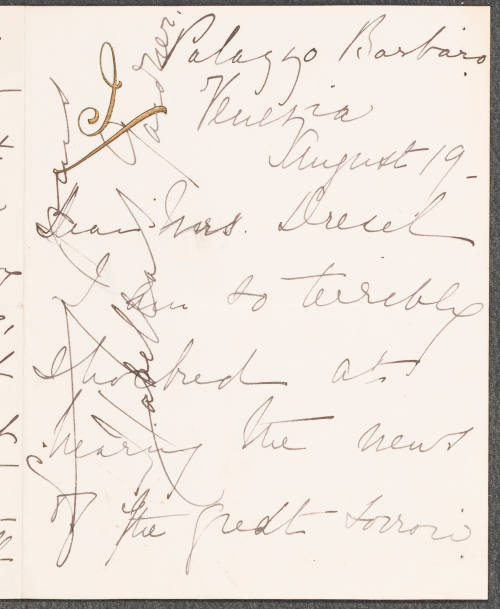 Palazzo Barbaro
Venezia
August 19-
Dear Mrs. Dresel
I am so terribly
shocked at
hearing the news
of the great sorrow.
Yours
Isabella
Gardner.